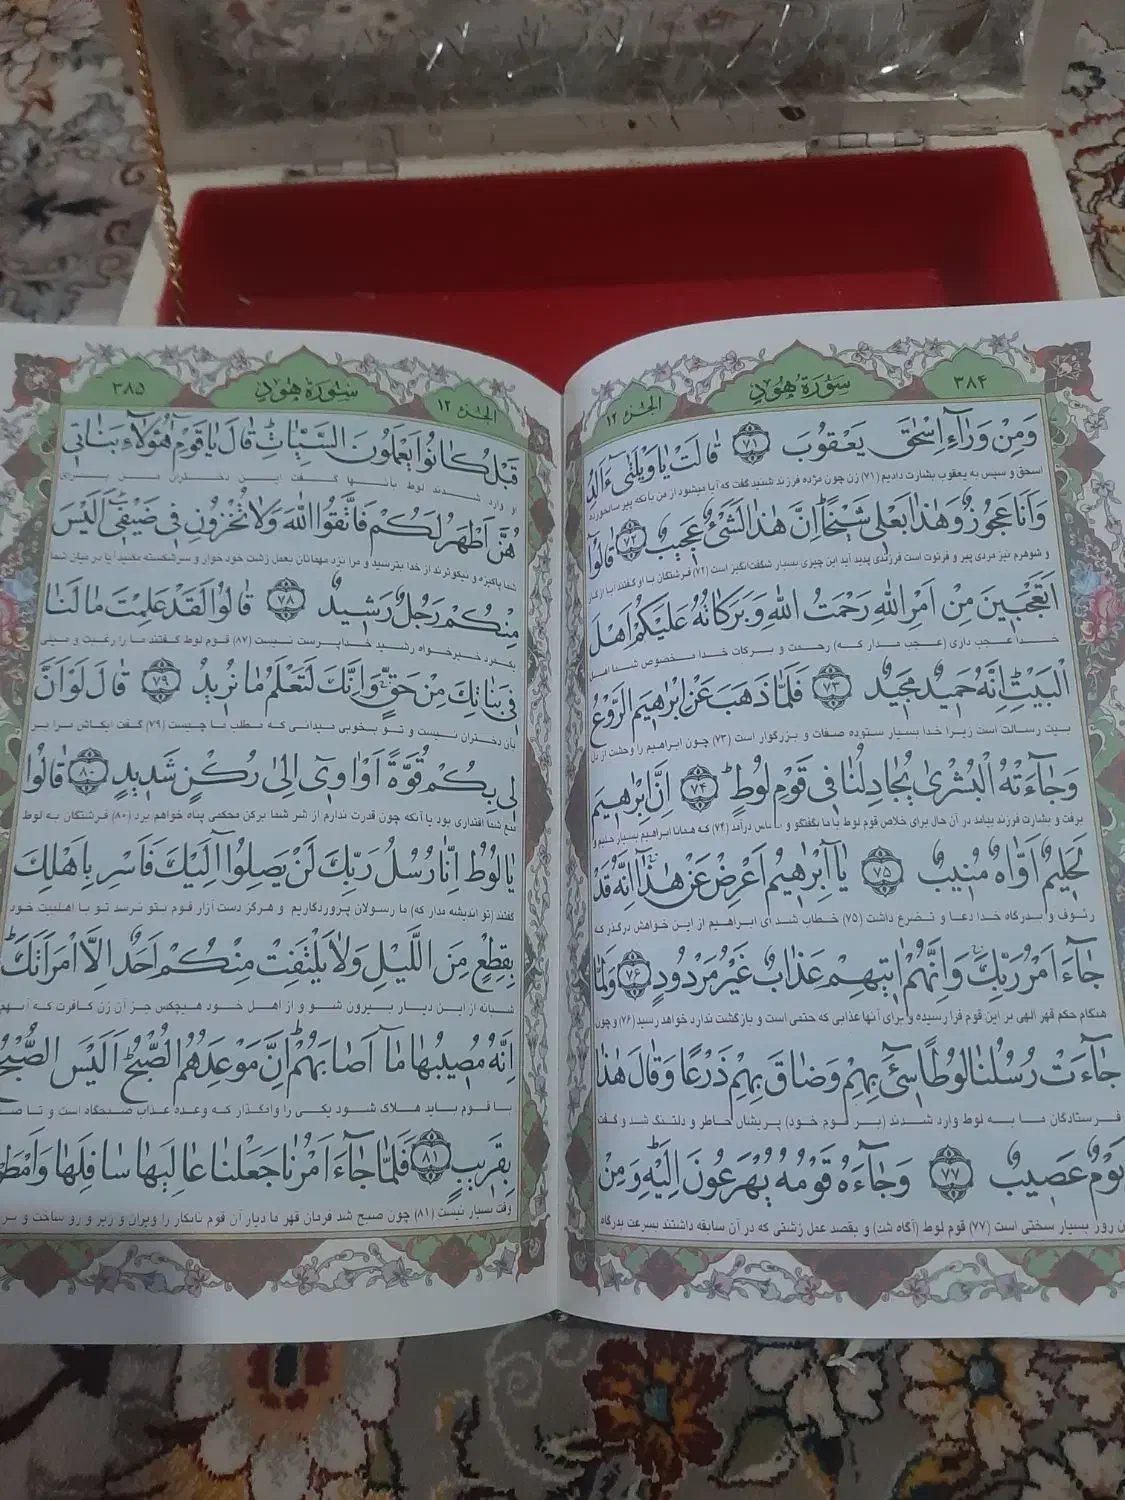 ۳۸۴
سورة هود
الجزء ۱۲
وَمِنْ وَرَآءِ اِسْحٰقَ يَعْقُوبَ ﴿۷۱﴾ قٰالَتْ يٰا وَيْلَتٰىٓ ءَاَلِدُ
اسحق و سپس به یعقوب بشارت دادیم (۷۱) زن چون مژده فرزند شنید گفت که آیا میشود از من با آنکه پیر سالخورده
وَاَنَا عَجُوزٌ وَهٰذٰا بَعْلِي شَيْخًا اِنَّ هٰذٰا لَشَيْءٌ عَجِيبٌ ﴿۷۲﴾ قٰالُوٓا
و شوهرم نیز مردی پیر و فرتوت است فرزندی پدید آید این چیزی بسیار شگفت‌انگیز است (۷۲) فرشتگان با او گفتند آیا از کار
اَتَعْجَبِينَ مِنْ اَمْرِ اللهِ رَحْمَتُ اللهِ وَبَرَكٰاتُهُ عَلَيْكُمْ اَهْلَ
خدا عجب داری (عجب مدار که) رحمت و برکات خدا مخصوص شما اهل
الْبَيْتِ اِنَّهُ حَمِيدٌ مَجِيدٌ ﴿۷۳﴾ فَلَمّٰا ذَهَبَ عَنْ اِبْرٰهِيمَ الرَّوْعُ
بیت رسالت است زیرا خدا بسیار ستوده صفات و بزرگوار است (۷۳) چون ابراهیم را وحشت از دل
وَجٰآءَتْهُ الْبُشْرٰى يُجٰادِلُنٰا فِي قَوْمِ لُوطٍ ﴿۷۴﴾ اِنَّ اِبْرٰهِيمَ
برفت و بشارت فرزند بیامد در آن حال برای خلاص قوم لوط با ما بگفتگو و التماس درآمد (۷۴) که همانا ابراهیم بسیار حلیم و
لَحَلِيمٌ اَوّٰاهٌ مُنِيبٌ ﴿۷۵﴾ يٰآ اِبْرٰهِيمُ اَعْرِضْ عَنْ هٰذٰآ اِنَّهُ قَدْ
رئوف و بدرگاه خدا دعا و تضرع داشت (۷۵) خطاب شد ای ابراهیم از این خواهش درگذر که
جٰآءَ اَمْرُ رَبِّكَ وَاِنَّهُمْ اٰتِيهِمْ عَذٰابٌ غَيْرُ مَرْدُودٍ ﴿۷۶﴾ وَلَمّٰا
هنگام حکم قهر الهی بر این قوم فرا رسیده و برای آنها عذابی که حتمی است و بازگشت ندارد خواهد رسید (۷۶) و چون
جٰآءَتْ رُسُلُنٰا لُوطًا سِيٓءَ بِهِمْ وَضٰاقَ بِهِمْ ذَرْعًا وَقٰالَ هٰذٰا
فرستادگان ما به لوط وارد شدند (بر قوم خود) پریشان خاطر و دلتنگ شد و گفت
يَوْمٌ عَصِيبٌ ﴿۷۷﴾ وَجٰآءَهُ قَوْمُهُ يُهْرَعُونَ اِلَيْهِ وَمِنْ
روز بسیار سختی است (۷۷) قوم لوط (آگاه شد) و بقصد عمل زشتی که در آن سابقه داشتند بسرعت بدرگاه
۳۸۵
سورة هود
الجزء ۱۲
قَبْلُ كٰانُوا يَعْمَلُونَ السَّيِّئٰاتِ قٰالَ يٰا قَوْمِ هٰٓؤُلٰآءِ بَنٰاتِي
او وارد شدند لوط بآنها گفت این دختران من برای
هُنَّ اَطْهَرُ لَكُمْ فَاتَّقُوا اللهَ وَلٰا تُخْزُونِ فِي ضَيْفِي اَلَيْسَ
شما پاکیزه و نیکوترند از خدا بترسید و مرا نزد مهمانان بعمل زشت خود خوار و سرشکسته مکنید آیا در میان شما
مِنْكُمْ رَجُلٌ رَشِيدٌ ﴿۷۸﴾ قٰالُوا لَقَدْ عَلِمْتَ مٰا لَنٰا
یکمرد خیرخواه رشید خداپرست نیست (۸۷) قوم لوط گفتند ما را رغبت و میلی
فِي بَنٰاتِكَ مِنْ حَقٍّ وَاِنَّكَ لَتَعْلَمُ مٰا نُرِيدُ ﴿۷۹﴾ قٰالَ لَوْ اَنَّ
بآن دختران نیست و تو بخوبی میدانی که مطلب ما چیست (۷۹) گفت ایکاش مرا بر
لِي بِكُمْ قُوَّةً اَوْ اٰوِيٓ اِلٰى رُكْنٍ شَدِيدٍ ﴿۸۰﴾ قٰالُوا
منع شما اقتداری بود یا آنکه چون قدرت ندارم از شر شما برکن محکمی پناه خواهم برد (۸۰) فرشتگان به لوط
يٰا لُوطُ اِنّٰا رُسُلُ رَبِّكَ لَنْ يَصِلُوٓا اِلَيْكَ فَاَسْرِ بِاَهْلِكَ
گفتند (تو اندیشه مدار که) ما رسولان پروردگاریم و هرگز دست آزار قوم بتو نرسد تو با اهلبیت خود
بِقِطْعٍ مِنَ اللَّيْلِ وَلٰا يَلْتَفِتْ مِنْكُمْ اَحَدٌ اِلَّا امْرَاَتَكَ
شبانه از این دیار بیرون شو و از اهل خود هیچکس جز آن زن کافرت که آنهم
اِنَّهُ مُصِيبُهٰا مٰآ اَصٰابَهُمْ اِنَّ مَوْعِدَهُمُ الصُّبْحُ اَلَيْسَ الصُّبْحُ
با قوم باید هلاک شود یکی را وامگذار که وعده عذاب صبحگاه است و تا
بِقَرِيبٍ ﴿۸۱﴾ فَلَمّٰا جٰآءَ اَمْرُنٰا جَعَلْنٰا عٰالِيَهٰا سٰافِلَهٰا
وقت بسیار نیست (۸۱) چون صبح شد فرمان قهر ما دیار آن قوم نابکار را ویران و زیر و رو ساخت و بر